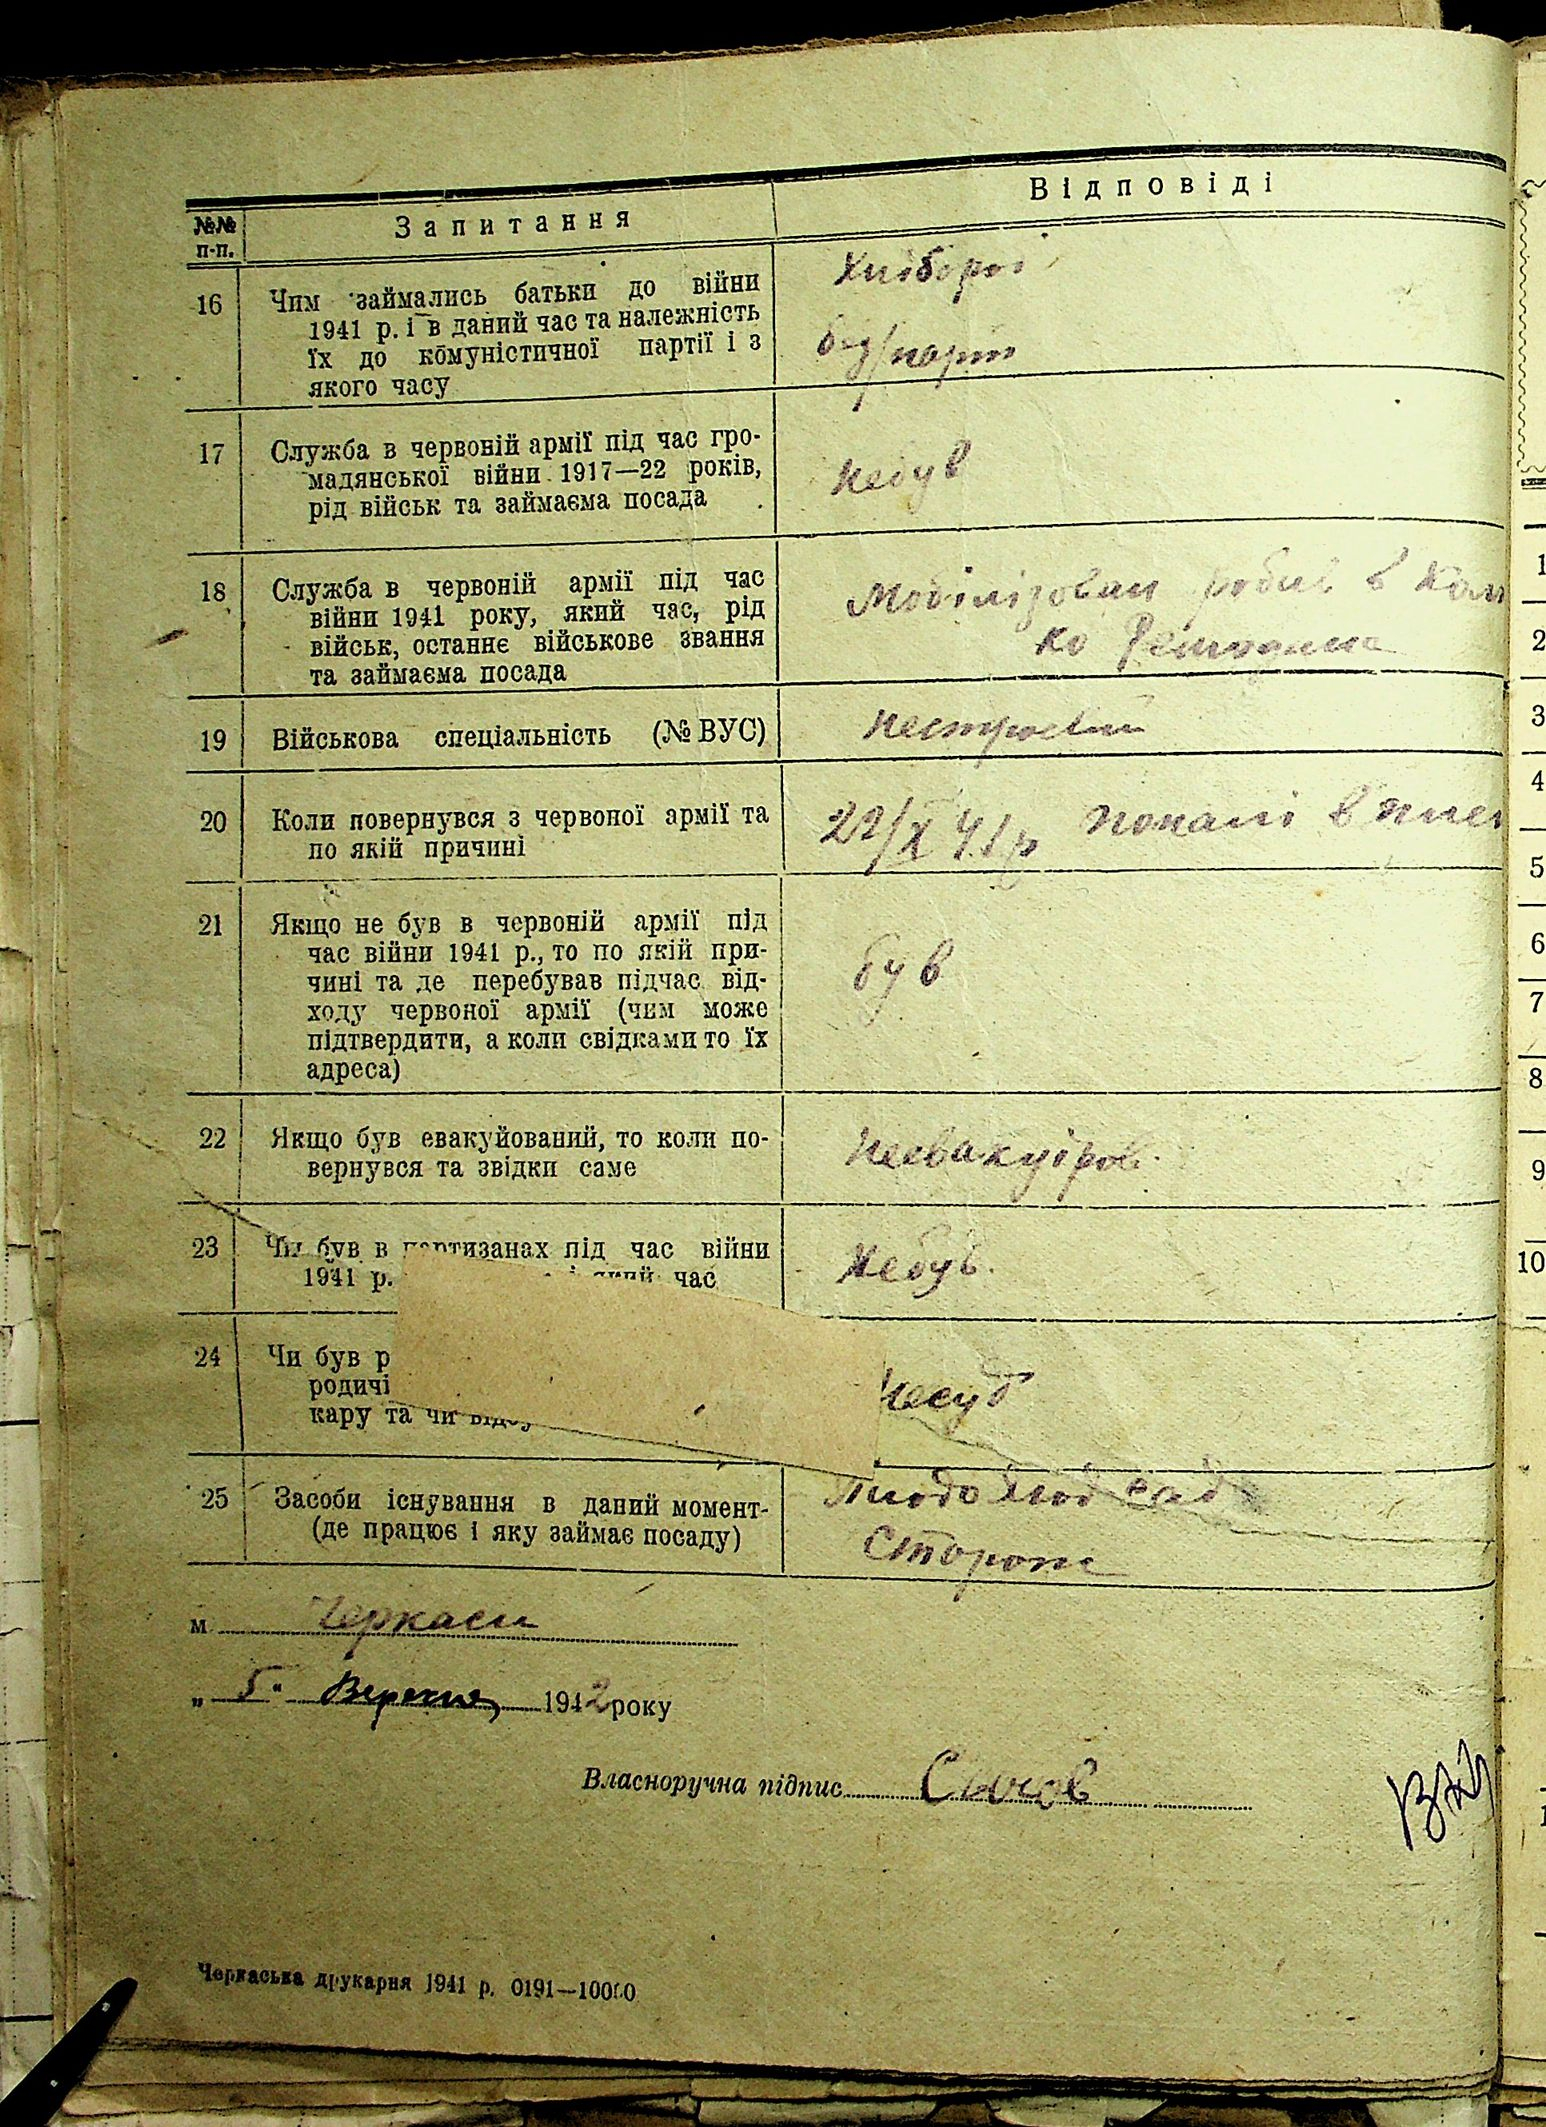 №№ п-п.
Запитання
Відповіді
16
Чим займались батьки до війни
1941 р. і в даний час та належність
їх до комуністичної партії і з
якого часу
Хлібороб
17
Служба в червоній армії під час гро-
мадянської війни 1917—22 років,
рід військ та займаєма посада
небув
18
Служба в червоній армії під час
війни 1941 року, який час, рід
військ, останнє військове звання
та займаєма посада
Мобілізован робив в
19
Військова спеціальність (№ ВУС)
нестроевий
20
Коли повернувся з червоної армії та
по якій причині
22/X 41 р
21
Якщо не був в червоній армії під
час війни 1941 р., то по якій при-
чині та де перебував підчас від-
ходу червоної армії (чим може
підтвердити, а коли свідками то їх
адреса)
був
22
Якщо був евакуйований, то коли по-
вернувся та звідки саме
неевакуіров.
23
Чи був в партизанах під час війни
1941 р. і який час
Небув.
24
Чи був р
родичі
кару та чи
несуд
25
Засоби існування в даний момент-
(де працює і яку займає посаду)
сад
Сторож
м Черкаси
„ 5 " Вересня 1942 року
Власноручна підпис
Черкаська друкарня 1941 р. 0191—10000
1
2
3
4
5
6
7
8
9
10